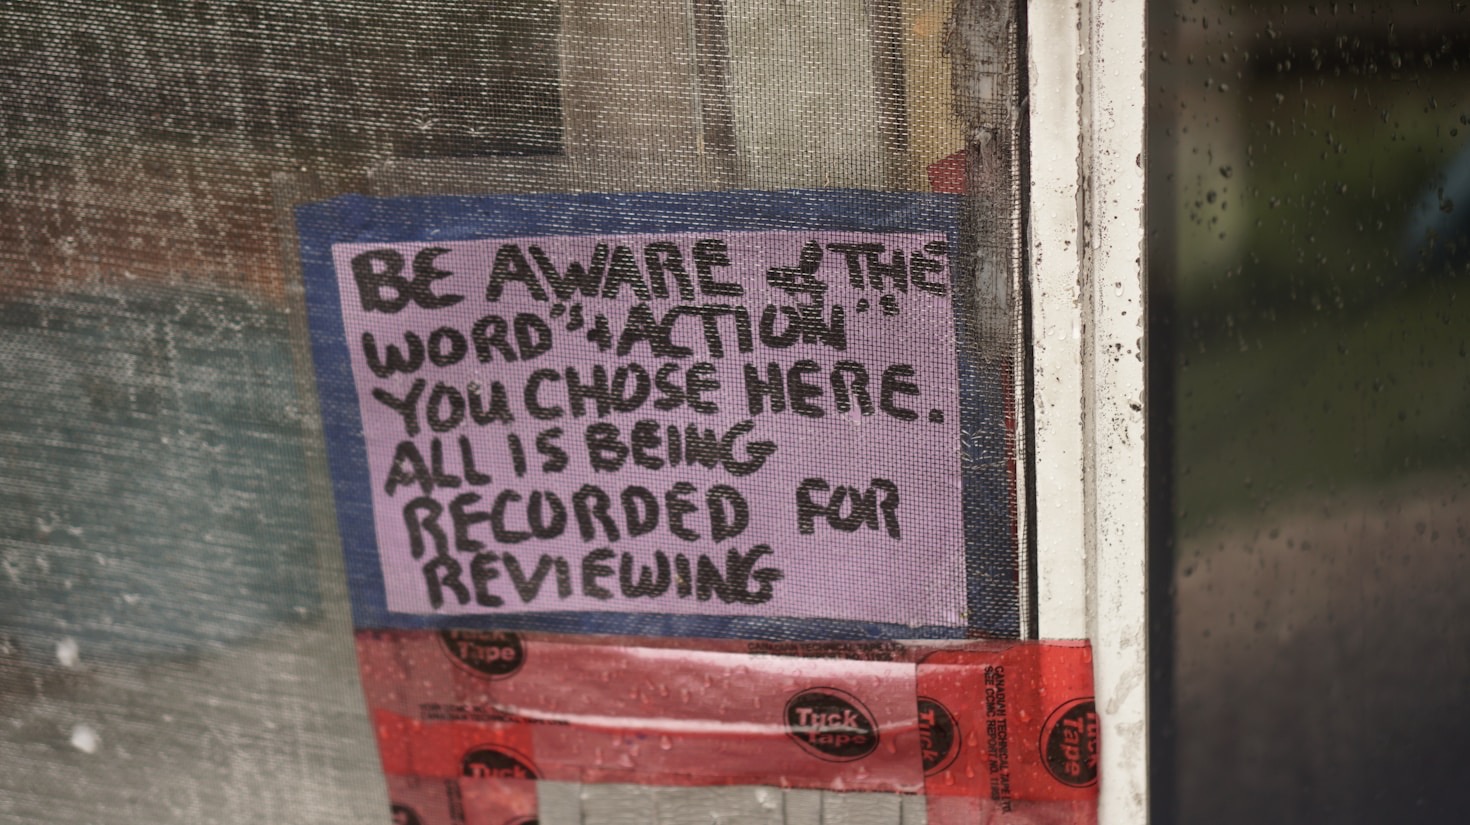 BE AWARE of THE
WORD "+ACTION"
YOU CHOSE HERE.
ALL IS BEING
RECORDED FOR
REVIEWING
Tuck
Tape
Tuck
Tape
Tuck
CANADIAN TECHNICAL TAPE LTD.
Tuck
Tape
Tuck